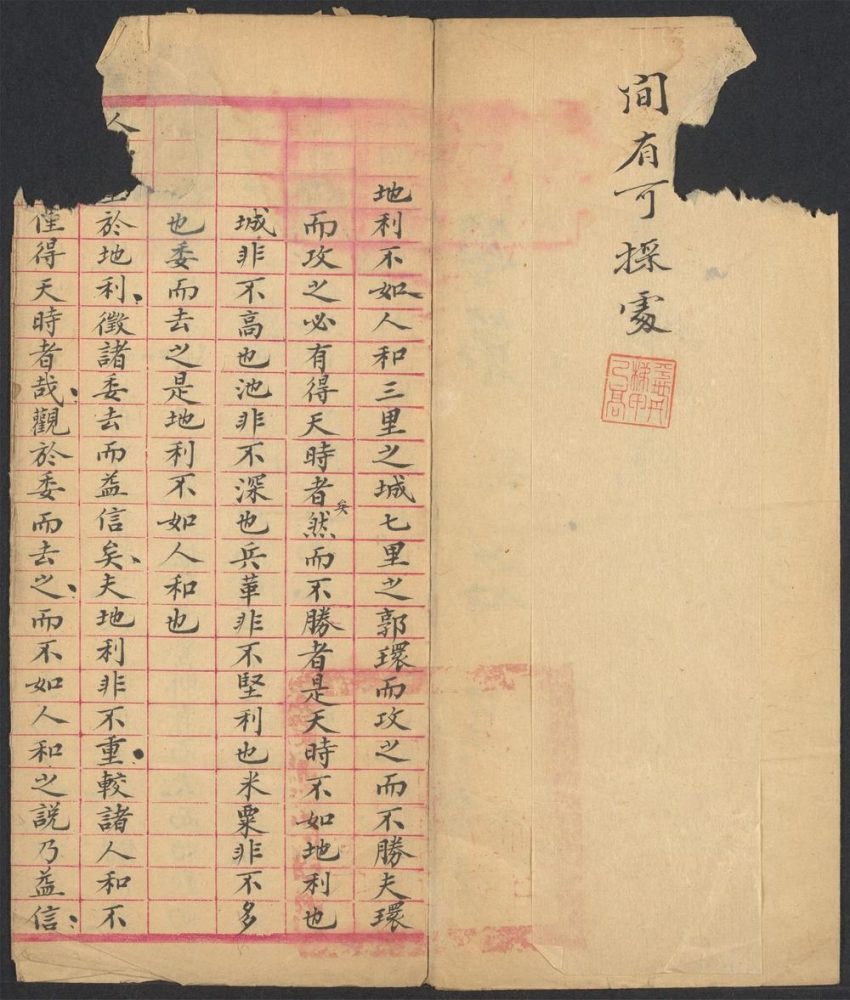 間有可採處
地利不如人和三里之城七里之郭環而攻之而不勝夫環
而攻之必有得天時者矣然而不勝者是天時不如地利也
城非不高也池非不深也兵革非不堅利也米粟非不多
也委而去之是地利不如人和也
人於地利徵諸委去而益信矣夫地利非不重較諸人和不
僅得天時者哉觀於委而去之而不如人和之說乃益信